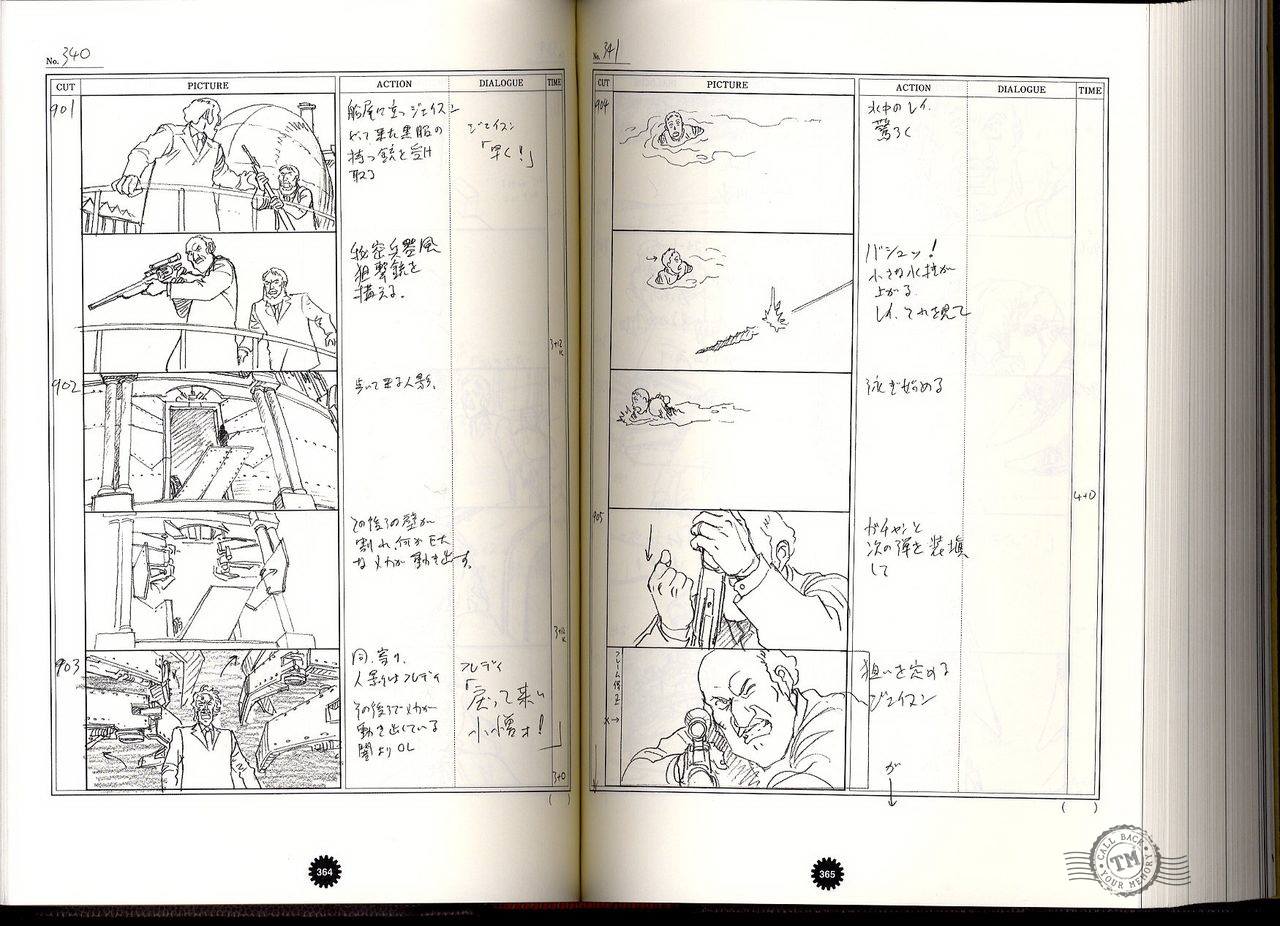 No. 340
CUT PICTURE ACTION DIALOGUE TIME
901
船尾に立つジェイスン
持つ銃を受け
取る
ジェイスン
「早く!」
秘密兵器風
狙撃銃を
構える。
3+12
902
歩いて来る人影。
その後ろの壁が
割れ、何か巨大
なメカが動き出す。
903
同、寄り。
人影はフレディ
その後ろでメカが
動き出している
闇よりOL
フレディ
「戻って来い
小僧ォ!」
3+0
( )
364
No. 341
CUT PICTURE ACTION DIALOGUE TIME
904
水中のレイ。
驚く
バシュッ!
小さな水柱が
上がる。
レイ、それを見て
泳ぎ始める
4+0
905
ガチャンと
次の弾を装填
して
フレーム修正
狙いを定める
ジェイスン
が
( )
365
CALL BACK
TM
YOUR MEMORY